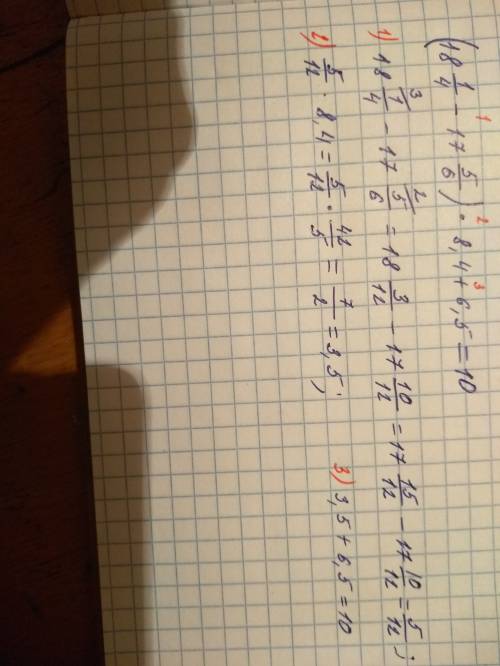 (18 1/4 - 17 5/6) · 8,4 + 6,5 = 10
1 2 3
1) 18 1/4 - 17 5/6 = 18 3/12 - 17 10/12 = 17 15/12 - 17 10/12 = 5/12;
3 2
2) 5/12 · 8,4 = 5/12 · 42/5 = 7/2 = 3,5;
3) 3,5 + 6,5 = 10